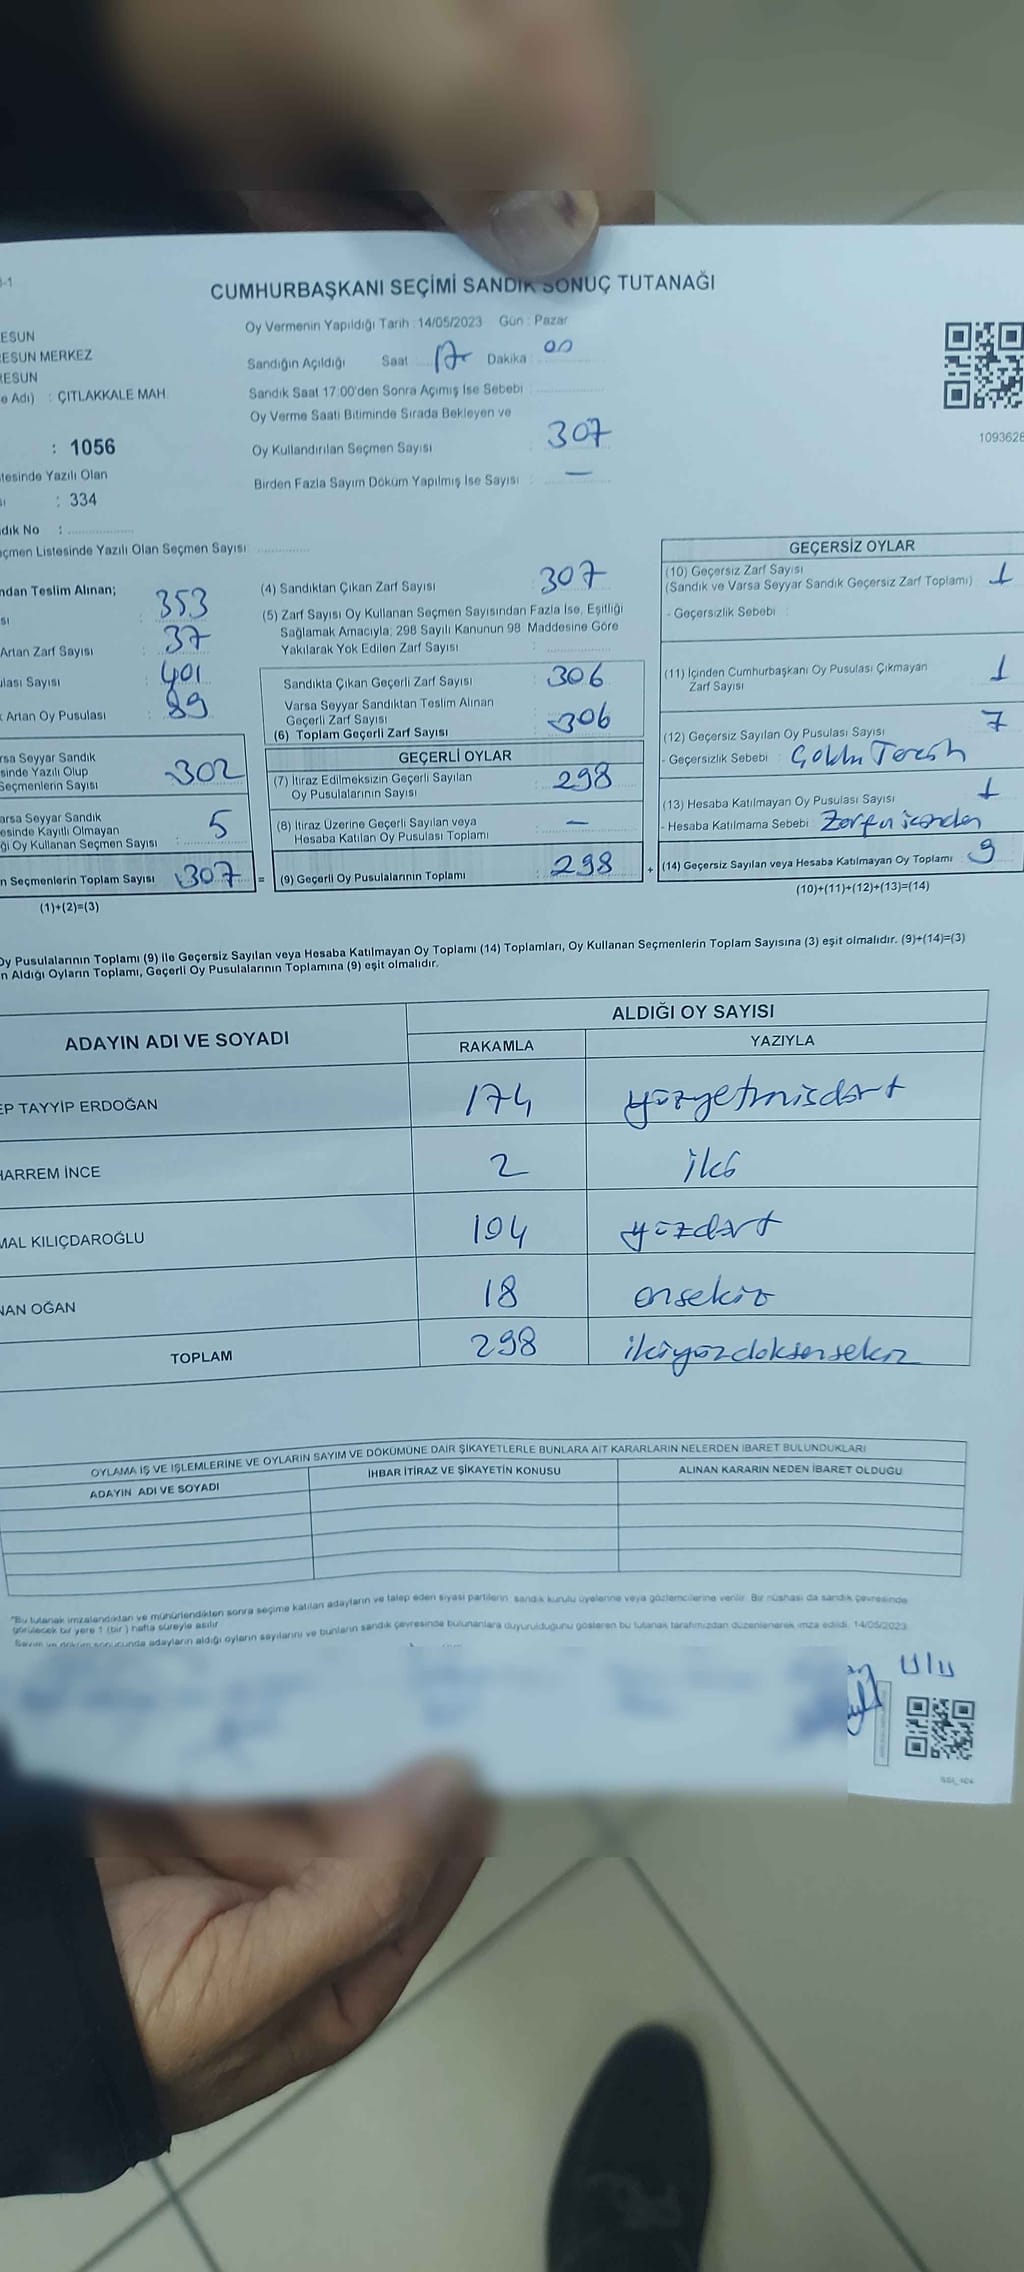 -1
CUMHURBAŞKANI SEÇİMİ SANDIK SONUÇ TUTANAĞI
Oy Vermenin Yapıldığı Tarih : 14/05/2023 Gün : Pazar
ESUN
ESUN MERKEZ
RESUN
e Adı) : ÇITLAKKALE MAH.
Sandığın Açıldığı Saat 17 Dakika 00
Sandık Saat 17:00'den Sonra Açımış İse Sebebi :
Oy Verme Saati Bitiminde Sırada Bekleyen ve
Oy Kullandırılan Seçmen Sayısı : 307
Birden Fazla Sayım Döküm Yapılmış İse Sayısı : —
1093628
: 1056
tesinde Yazılı Olan
sı : 334
dık No :
çmen Listesinde Yazılı Olan Seçmen Sayısı
ndan Teslim Alınan;
sı : 353
Artan Zarf Sayısı : 37
ulası Sayısı : 401
Artan Oy Pusulası : 89
rsa Seyyar Sandık
sinde Yazılı Olup
Seçmenlerin Sayısı 302
arsa Seyyar Sandık
esinde Kayıtlı Olmayan
ği Oy Kullanan Seçmen Sayısı : 5
n Seçmenlerin Toplam Sayısı 307 =
(1)+(2)=(3)
(4) Sandıktan Çıkan Zarf Sayısı : 307
(5) Zarf Sayısı Oy Kullanan Seçmen Sayısından Fazla İse, Eşitliği
Sağlamak Amacıyla; 298 Sayılı Kanunun 98. Maddesine Göre
Yakılarak Yok Edilen Zarf Sayısı :
Sandıkta Çıkan Geçerli Zarf Sayısı : 306
Varsa Seyyar Sandıktan Teslim Alınan
Geçerli Zarf Sayısı
(6) Toplam Geçerli Zarf Sayısı : 306
GEÇERLİ OYLAR
(7) İtiraz Edilmeksizin Geçerli Sayılan
Oy Pusulalarının Sayısı : 298
(8) İtiraz Üzerine Geçerli Sayılan veya
Hesaba Katılan Oy Pusulası Toplamı : —
(9) Geçerli Oy Pusulalarının Toplamı : 298 +
GEÇERSİZ OYLAR
(10) Geçersiz Zarf Sayısı
(Sandık ve Varsa Seyyar Sandık Geçersiz Zarf Toplamı) : 1
- Geçersizlik Sebebi :
(11) İçinden Cumhurbaşkanı Oy Pusulası Çıkmayan
Zarf Sayısı 1
(12) Geçersiz Sayılan Oy Pusulası Sayısı 7
- Geçersizlik Sebebi :
(13) Hesaba Katılmayan Oy Pusulası Sayısı 1
- Hesaba Katılmama Sebebi :
(14) Geçersiz Sayılan veya Hesaba Katılmayan Oy Toplamı 9
(10)+(11)+(12)+(13)=(14)
Oy Pusulalarının Toplamı (9) ile Geçersiz Sayılan veya Hesaba Katılmayan Oy Toplamı (14) Toplamları, Oy Kullanan Seçmenlerin Toplam Sayısına (3) eşit olmalıdır. (9)+(14)=(3)
n Aldığı Oyların Toplamı, Geçerli Oy Pusulalarının Toplamına (9) eşit olmalıdır.
ADAYIN ADI VE SOYADI
ALDIĞI OY SAYISI
RAKAMLA YAZIYLA
EP TAYYİP ERDOĞAN 174 yüzyetmişdört
HARREM İNCE 2 iki
MAL KILIÇDAROĞLU 104 yüzdört
NAN OĞAN 18 onsekiz
TOPLAM 298 ikiyüzdoksansekiz
OYLAMA İŞ VE İŞLEMLERİNE VE OYLARIN SAYIM VE DÖKÜMÜNE DAİR ŞİKAYETLERLE BUNLARA AİT KARARLARIN NELERDEN İBARET BULUNDUKLARI
ADAYIN ADI VE SOYADI İHBAR İTİRAZ VE ŞİKAYETİN KONUSU ALINAN KARARIN NEDEN İBARET OLDUĞU
"Bu tutanak imzalandıktan ve mühürlendikten sonra seçime katılan adayların ve talep eden siyasi partilerin sandık kurulu üyelerine veya gözlemcilerine verilir. Bir nüshası da sandık çevresinde
görülecek bir yere 1 (bir) hafta süreyle asılır.
Sayım ve döküm sonucunda adayların aldığı oyların sayılarını ve bunların sandık çevresinde bulunanlara duyurulduğunu gösteren bu tutanak tarafımızdan düzenlenerek imza edildi. 14/05/2023
Ulu